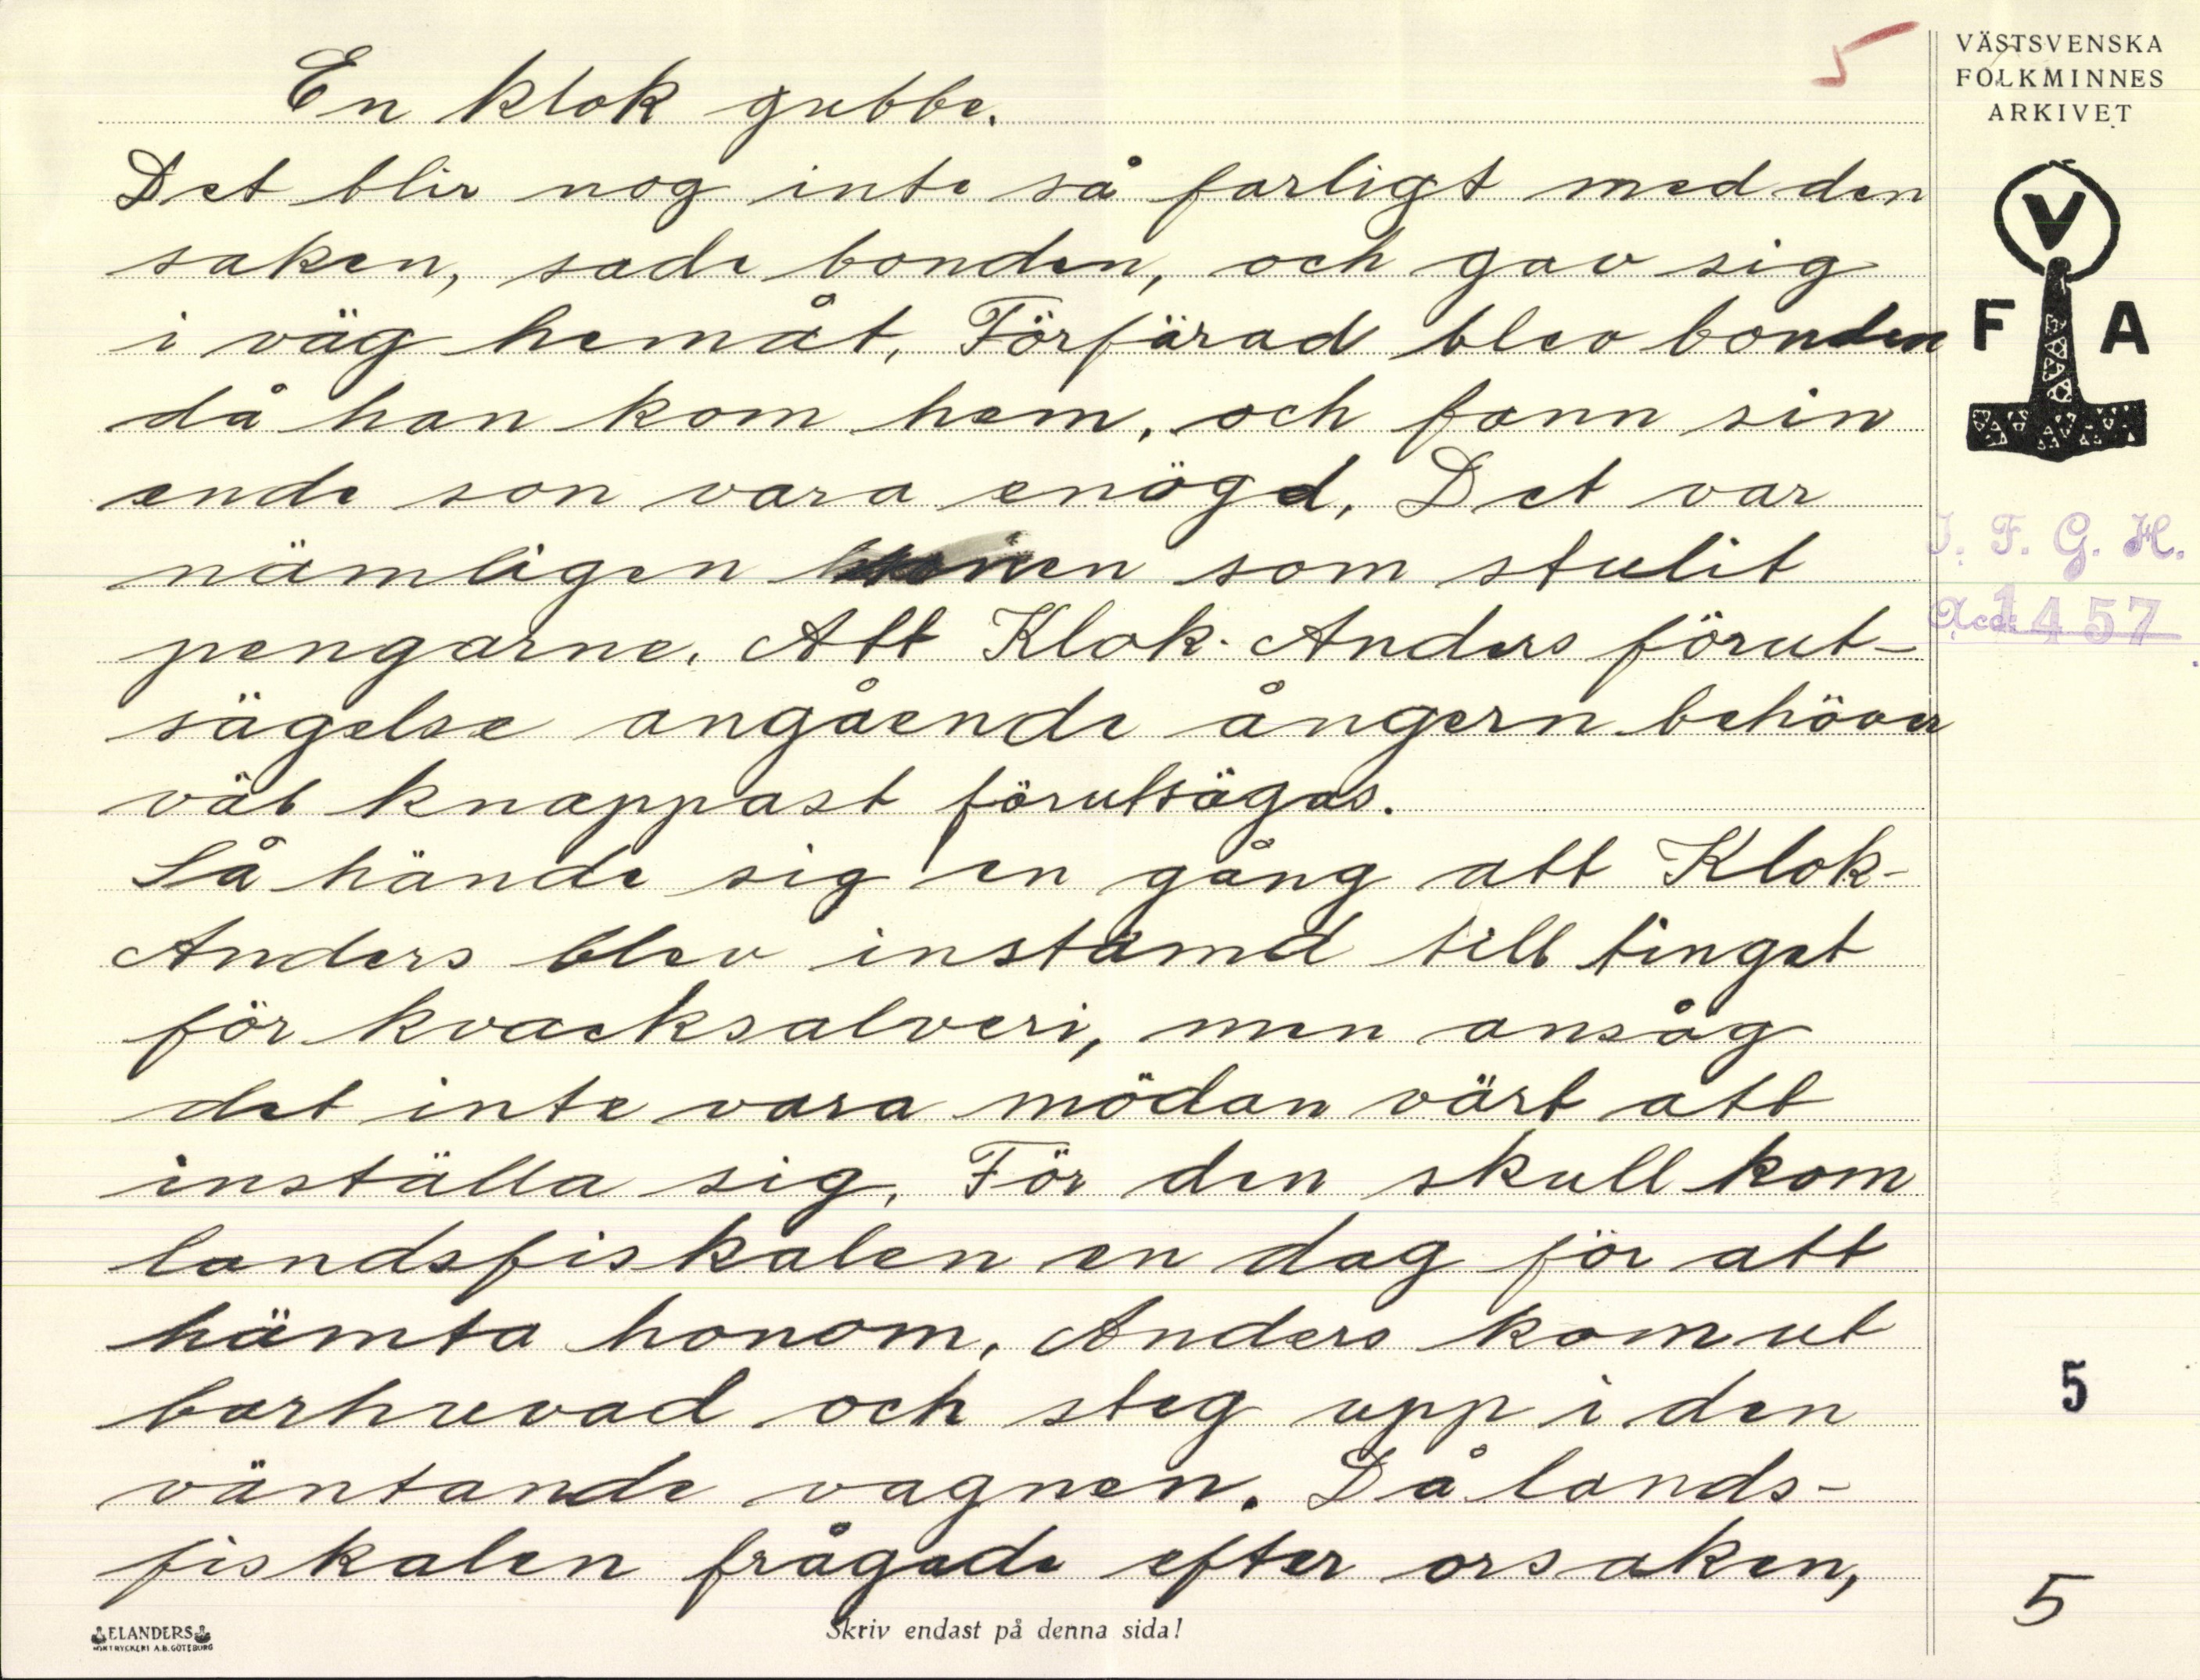 En klok gubbe.
5
VÄSTSVENSKA
FOLKMINNES
ARKIVET
Det blir nog inte så farligt med den
saken, sade bonden, och gav sig
i väg hemåt. Förfärad blev bonden
då han kom hem, och fann sin
ende son vara enögd. Det var
nämligen som stulit
pengarne. Att Klok-Anders förut-
sägelse angående ångern behöver
väl knappast förutsägas.
Så hände sig en gång att Klok-
Anders blev instämd till tinget
för kvacksalveri, men ansåg
det inte vara mödan värt att
inställa sig. För den skull kom
landsfiskalen en dag för att
hämta honom. Anders kom ut
barhuvad och steg upp i den
väntande vagnen. Då lands-
fiskalen frågade efter orsaken,
V
F A
I. F. G. H.
Acc. 1457
5
5
ELANDERS
BOKTRYCKERI A.B. GÖTEBORG
Skriv endast på denna sida!